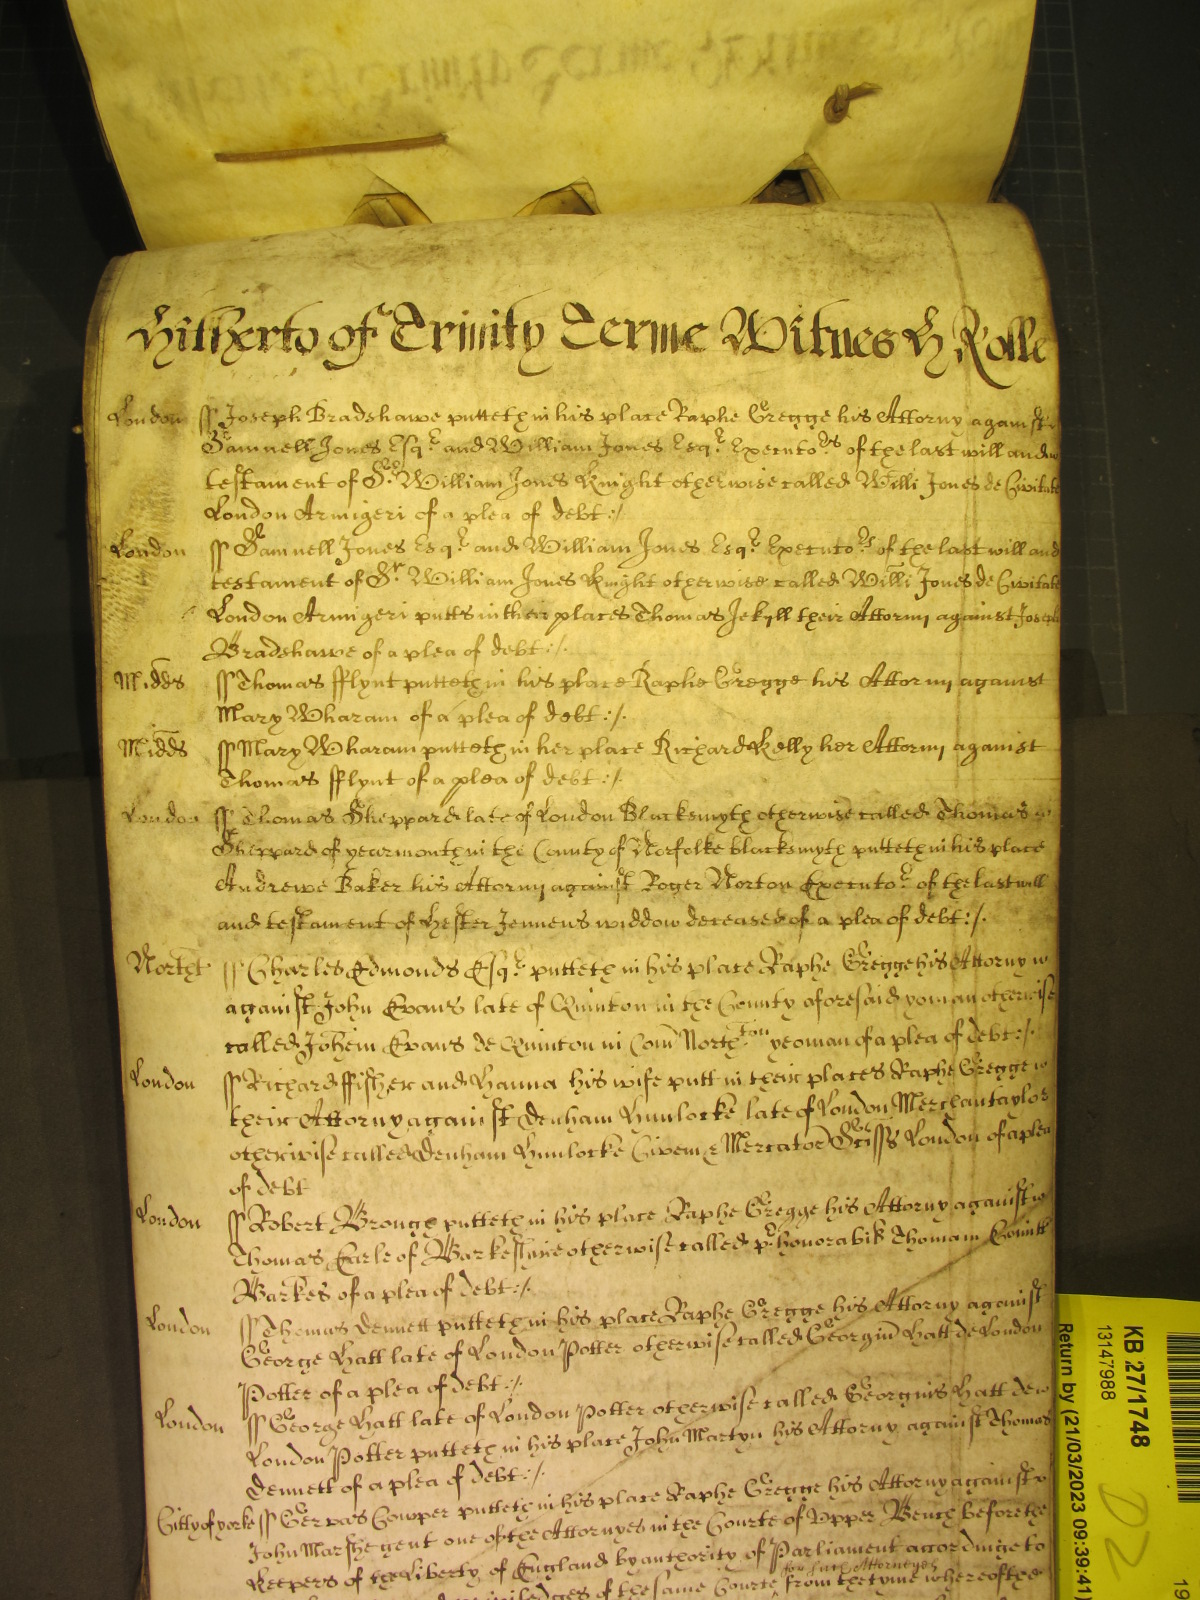 Hitherto of Trinity Terme Witnes H Rolle
London ss Joseph Bradshawe putteth in his place Raphe Gregge his Attorny against
Samuell Jones Esqr and William Jones Esqr Executors of the last will and
testament of Sr William Jones Knight otherwise called Willi Jones de Civitate
London Armigeri of a plea of debt:/
London ss Samuell Jones Esqr and William Jones Esqr Executors of the last will and
testament of Sr William Jones Knight otherwise called Willi Jones de Civitate
London Armigeri putts in their places Thomas Jekyll their Attorny against Joseph
Bradshawe of a plea of debt:/.
Midds ss Thomas fflynt putteth in his place Raphe Gregge his Attorny against
Mary Wharam of a plea of debt:/.
Midds ss Mary Wharam putteth in her place Richard Kelly her Attorny against
Thomas fflynt of a plea of debt:/.
London ss Thomas Sheppard late of London Blacksmyth otherwise called Thomas
Sheppard of yearmouth in the County of Norfolke blacksmyth putteth in his place
Andrewe Baker his Attorny against Roger Norton Executor of the last will
and testament of Hester Jennens widdow deceased of a plea of debt:/.
Northt ss Charles Edmonds Esqr putteth in his place Raphe Gregge his Attorny
against John Evans late of Quinton in the County aforesaid yoman otherwise
called Johem Evans de Quinton in Com Northton yeoman of a plea of debt:/.
London ss Richard ffisher and Hanna his wife putt in their places Raphe Gregge
their Attorny against Denham Hunlocke late of London Merchantaylor
otherwise called Denham Hunlocke Civem & Mercator Scissr London of a plea
of debt
London ss Robert Brough putteth in his place Raphe Gregge his Attorny against
Thomas Earle of Barkeshire otherwise called pr honorabil Thomam Comitt
Barkes of a plea of debt:/.
London ss Thomas Dennett putteth in his place Raphe Gregge his Attorny against
George Hatt late of London Potter otherwise called Georgiu Hatt de London
Potter of a plea of debt:/.
London ss George Hatt late of London Potter otherwise called Georgius Hatt de
London Potter putteth in his place John Martyn his Attorny against Thomas
Dennett of a plea of debt:/.
Citty of yorke ss Gervas Cowper putteth in his place Raphe Gregge his Attorny against
John Marshe gent one of the Attornyes in the Courte of Upper Bench before the
Keepers of the Liberty of England by authority of Parliament accordinge to
for such Attorneyes
of the same Courte from the tyme whereof the
KB 27/1748
13147988
Return by (21/03/2023 09:39:41)
D2
19